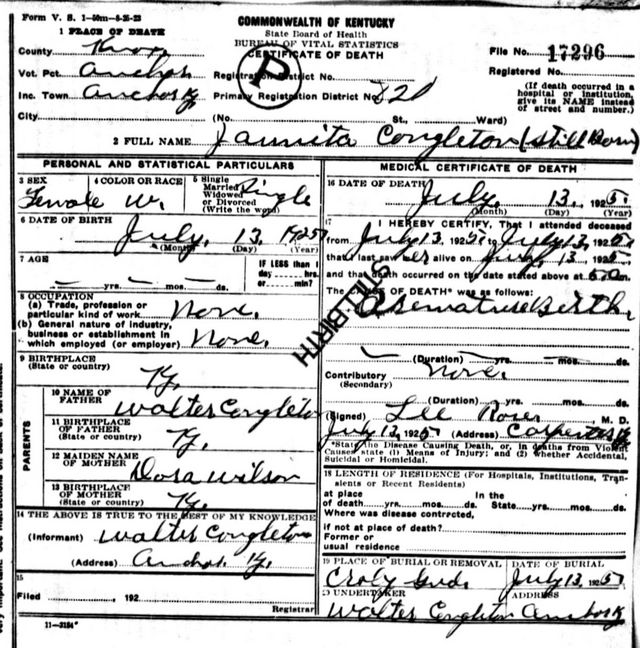 Form V. S. 1-50m-5-25-23
COMMONWEALTH OF KENTUCKY
State Board of Health
BUREAU OF VITAL STATISTICS
CERTIFICATE OF DEATH
1 PLACE OF DEATH
County Knox
Vot. Pct. Anchor
Inc. Town Anchor Ky
City
P
Registration District No.
Primary Registration District No. 820
File No. 17296
Registered No.
(If death occurred in a
hospital or institution,
give its NAME instead
of street and number.)
(No. St., Ward)
2 FULL NAME Jaunita Congleton (Still Born)
PERSONAL AND STATISTICAL PARTICULARS
3 SEX Female
4 COLOR OR RACE W.
5 Single
Married
Widowed
or Divorced
(Write the word) Single
6 DATE OF BIRTH July, 13, 1925
(Month) (Day) (Year)
7 AGE
IF LESS than 1
day hrs.
or min?
yrs. mos. ds.
8 OCCUPATION
(a) Trade, profession or
particular kind of work None,
(b) General nature of industry,
business or establishment in
which employed (or employer) None,
9 BIRTHPLACE
(State or country) Ky.
PARENTS
10 NAME OF
FATHER Walter Congleton
11 BIRTHPLACE
OF FATHER
(State or country) Ky.
12 MAIDEN NAME
OF MOTHER Dora Wilson
13 BIRTHPLACE
OF MOTHER
(State or country) Ky.
14 THE ABOVE IS TRUE TO THE BEST OF MY KNOWLEDGE
(Informant) Walter Congleton
(Address) Anchor Ky.
15
Filed , 192
Registrar
11-3184
MEDICAL CERTIFICATE OF DEATH
16 DATE OF DEATH July, 13, 1925.
(Month) (Day) (Year)
17 I HEREBY CERTIFY, That I attended deceased
from July 13, 1925, to July 13, 1925
that I last saw her alive on July, 13, 1925.
and that death occurred on the date stated above at
The CAUSE OF DEATH* was as follows:
Prematurebirth
STILLBIRTH
(Duration) yrs. mos. ds.
Contributory None
(Secondary)
(Duration) yrs. mos. ds.
(Signed) Lee M. D.
July 13, 1925 (Address)
*State the Disease Causing Death, or, in deaths from Violent
Causes state (1) Means of Injury; and (2) whether Accidental,
Suicidal or Homicidal.
18 LENGTH OF RESIDENCE (For Hospitals, Institutions, Tran-
sients or Recent Residents)
at place In the
of death yrs. mos. ds. State yrs. mos. ds.
Where was disease contrcted,
if not at place of death?
Former or
usual residence
19 PLACE OF BURIAL OR REMOVAL DATE OF BURIAL
July 13, 1925
20 UNDERTAKER ADDRESS
Walter Congleton Anchor Ky